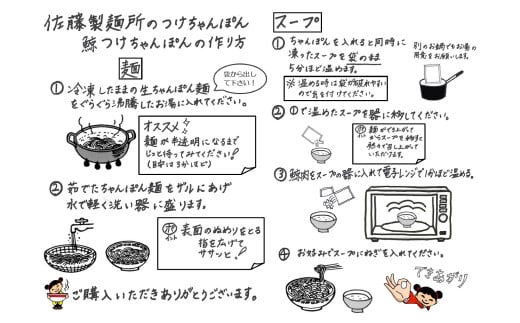 佐藤製麺所のつけちゃんぽん
鯨つけちゃんぽんの作り方
麺
① 冷凍したままの生ちゃんぽん麺を
ぐらぐら沸騰したお湯に入れてください。
袋から出して
下さい!
オススメ
麺が半透明になるまで
じっと待ってみてください!
(目安は5分ほど)
② 茹でたちゃんぽん麺をザルにあげ
水で軽く洗い器に盛ります。
ポイント
表面のぬめりをとる
指を広げて
ササッと!
ご購入いただきありがとうございます。
スープ
① ちゃんぽんを入れると同時に
凍ったスープを袋のまま
5分ほど温めます。
※温める時は袋が破れやすい
ので気を付けてください。
別のお鍋でもお湯の
用意をお願いします。
② ①で温めたスープを器に移してください。
ポイント
麺ができ上がって
からスープを移すと
熱々で召し上がって
いただけます。
③ 鯨肉をスープの器に入れて電子レンジで1分ほど温める。
④ お好みでスープにねぎを入れてください。
できあがり